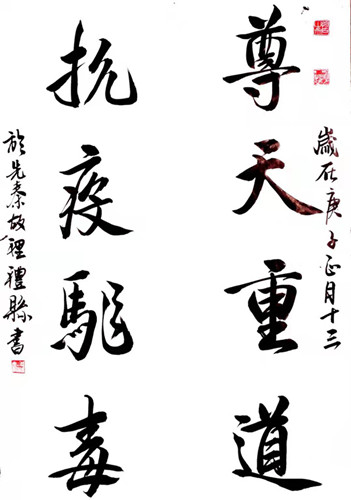 歲在庚子正月十三
尊天重道
抗疫駈毒
於先秦故裡禮縣書